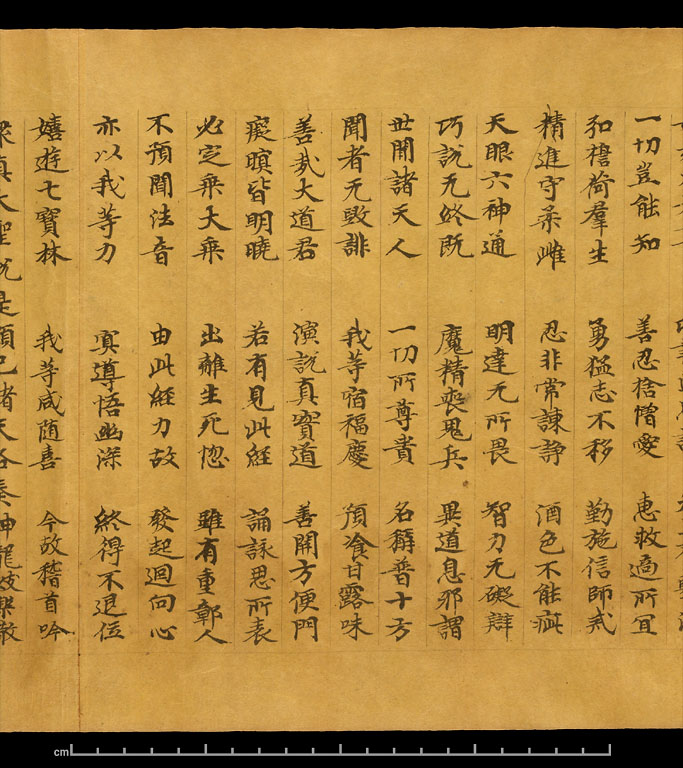 一切豈能知 善忍捨憎愛 惠救適所宜
和擔荷羣生 勇猛志不移 勤施信師戒
精進守柔雌 忍非常諫諍 酒色不能
天眼六神通 明達无所畏 智力无礙辯
巧説无終既 魔精喪鬼兵 異道息邪謂
世間諸天人 一切所尊貴 名稱普十方
聞者无毀誹 我等宿福慶 預飡甘露味
善哉大道君 演説真寶道 善開方便門
癡暝皆明曉 若有見此經 誦詠思所表
必定乘大乘 出離生死惚 雖有重鄣人
不預聞法音 由此經力故 發起迴向心
亦以我等力 寘尊悟幽深 終得不退位
嬉遊七寶林 我等咸随喜 今故稽首吟
真大聖説是頌已諸天各奏神龍妓樂散